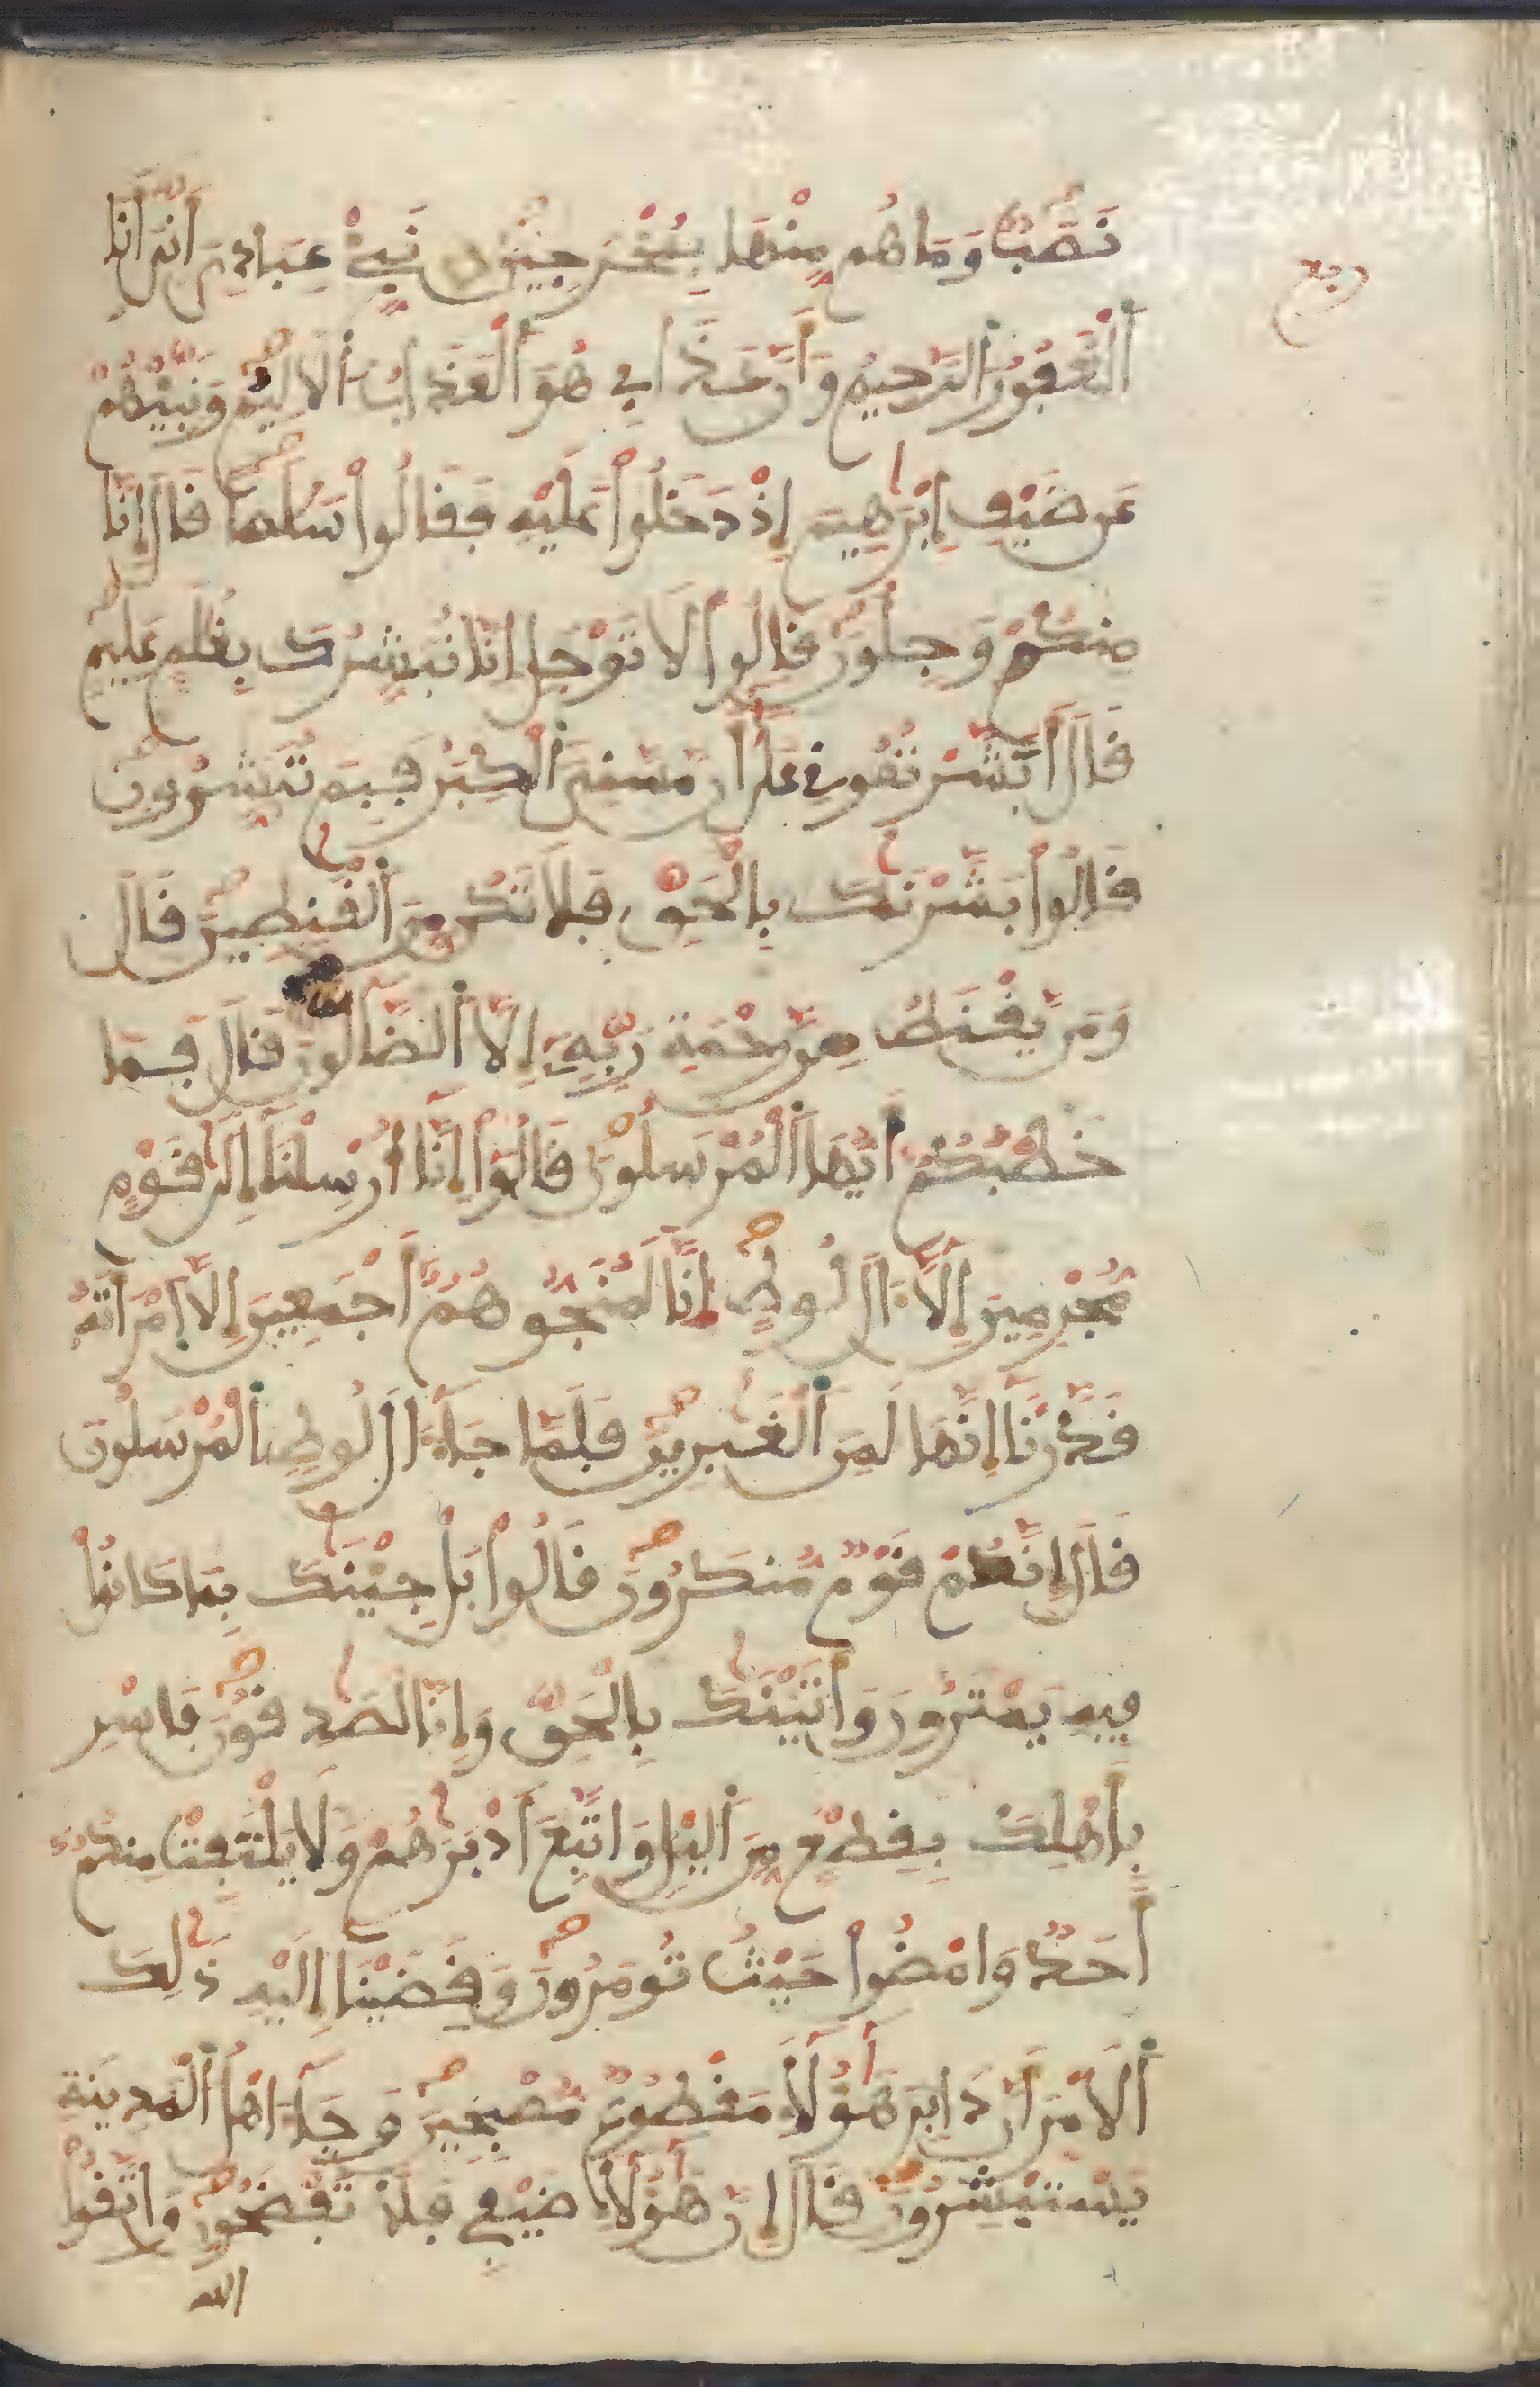 نَصَبٌ وَمَا هُم مِّنْهَا بِمُخْرَجِينَ نَبِّئْ عِبَادِيَ أَنِّيَ أَنَا
ربع
اَ۬لْغَفُورُ اُ۬لرَّحِيمُ وَأَنَّ عَذَابِي هُوَ اَ۬لْعَذَابُ اُ۬لَالِيمُ وَنَبِّئْهُمْ
عَن ضَيْفِ إِبْرَٰهِيمَ إِذْ دَخَلُواْ عَلَيْهِ فَقَالُواْ سَلَٰماً قَالَ إِنَّا
مِنكُمْ وَجِلُونَ قَالُواْ لَا تَوْجَلِ انَّا نُبَشِّرُكَ بِغُلَٰمٍ عَلِيمٍ
قَالَ أَبَشَّرْتُمُونِي عَلَىٰ أَن مَّسَّنِيَ اَ۬لْكِبَرُ فَبِمَ تُبَشِّرُونِ
قَالُواْ بَشَّرْنَٰكَ بِالْحَقِّ فَلَا تَكُن مِّنَ اَ۬لْقَٰنِطِينَ قَالَ
وَمَنْ يَّقْنَطُ مِن رَّحْمَةِ رَبِّهِۦٓ إِلَّا اَ۬لضَّآلُّونَ قَالَ فَمَا
خَطْبُكُمُۥٓ أَيُّهَا اَ۬لْمُرْسَلُونَ قَالُوٓاْ إِنَّآ أُرْسِلْنَآ إِلَىٰ قَوْمٍ
مُّجْرِمِينَ إِلَّآ ءَالَ لُوطٍ اِنَّا لَمُنَجُّوهُمُۥٓ أَجْمَعِينَ إِلَّا اَ۪مْرَأَتَهُۥ
قَدَّرْنَآ إِنَّهَا لَمِنَ اَ۬لْغَٰبِرِينَ فَلَمَّا جَآءَ الَ لُوطٍ اِ۬لْمُرْسَلُونَ
قَالَ إِنَّكُمْ قَوْمٌ مُّنكَرُونَ قَالُواْ بَلْ جِئْنَٰكَ بِمَا كَانُواْ
فِيهِ يَمْتَرُونَ وَأَتَيْنَٰكَ بِالْحَقِّ وَإِنَّا لَصَٰدِقُونَ فَاسْرِ
بِأَهْلِكَ بِقِطْعٍ مِّنَ اَ۬ليْلِ وَاتَّبِعَ اَدْبَٰرَهُمْ وَلَا يَلْتَفِتْ مِنكُمُۥٓ
أَحَدٌ وَامْضُواْ حَيْثُ تُومَرُونَ وَقَضَيْنَآ إِلَيْهِ ذَٰلِكَ
اَ۬لَامْرَ أَنَّ دَابِرَ هَٰٓؤُلَآءِ مَقْطُوعٌ مُّصْبِحِينَ وَجَآءَ اهْلُ اُ۬لْمَدِينَةِ
يَسْتَبْشِرُونَ قَالَ إِنَّ هَٰٓؤُلَآءِ ضَيْفِي فَلَا تَفْضَحُونِ وَاتَّقُواْ
الله